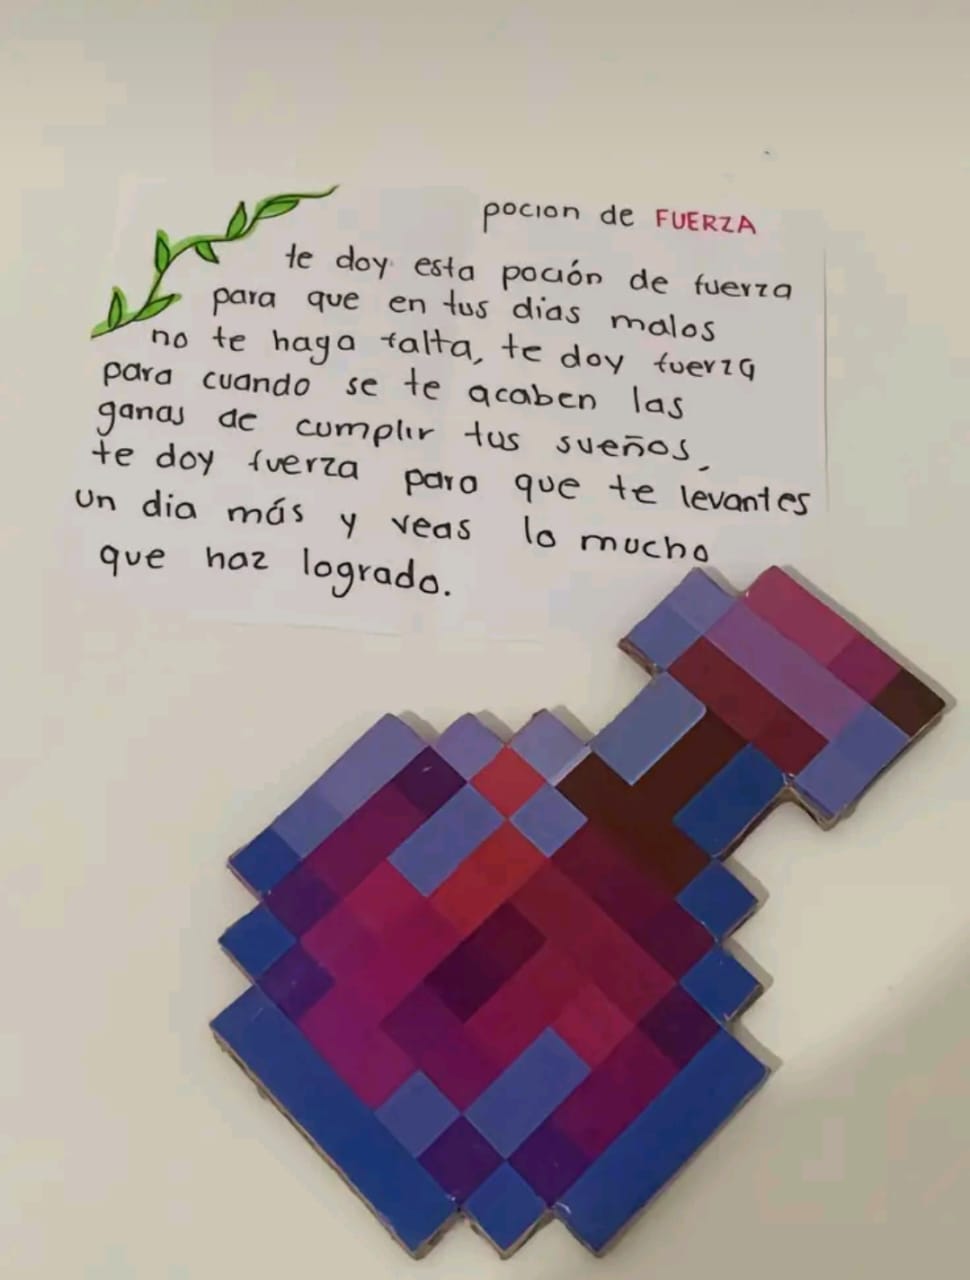 pocion de FUERZA
te doy esta poción de fuerza
para que en tus dias malos
no te haga falta, te doy fuerza
para cuando se te acaben las
ganas de cumplir tus sueños,
te doy fuerza para que te levantes
un dia más y veas lo mucho
que haz logrado.